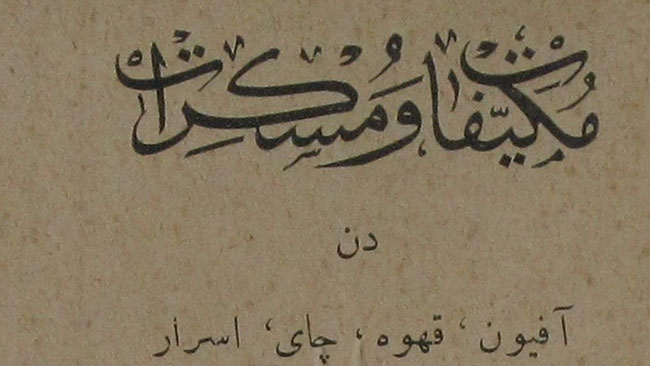 مُكيّفات وَمُسكرات
دن
آفيون ، قهوه ، چاى ، اسرار